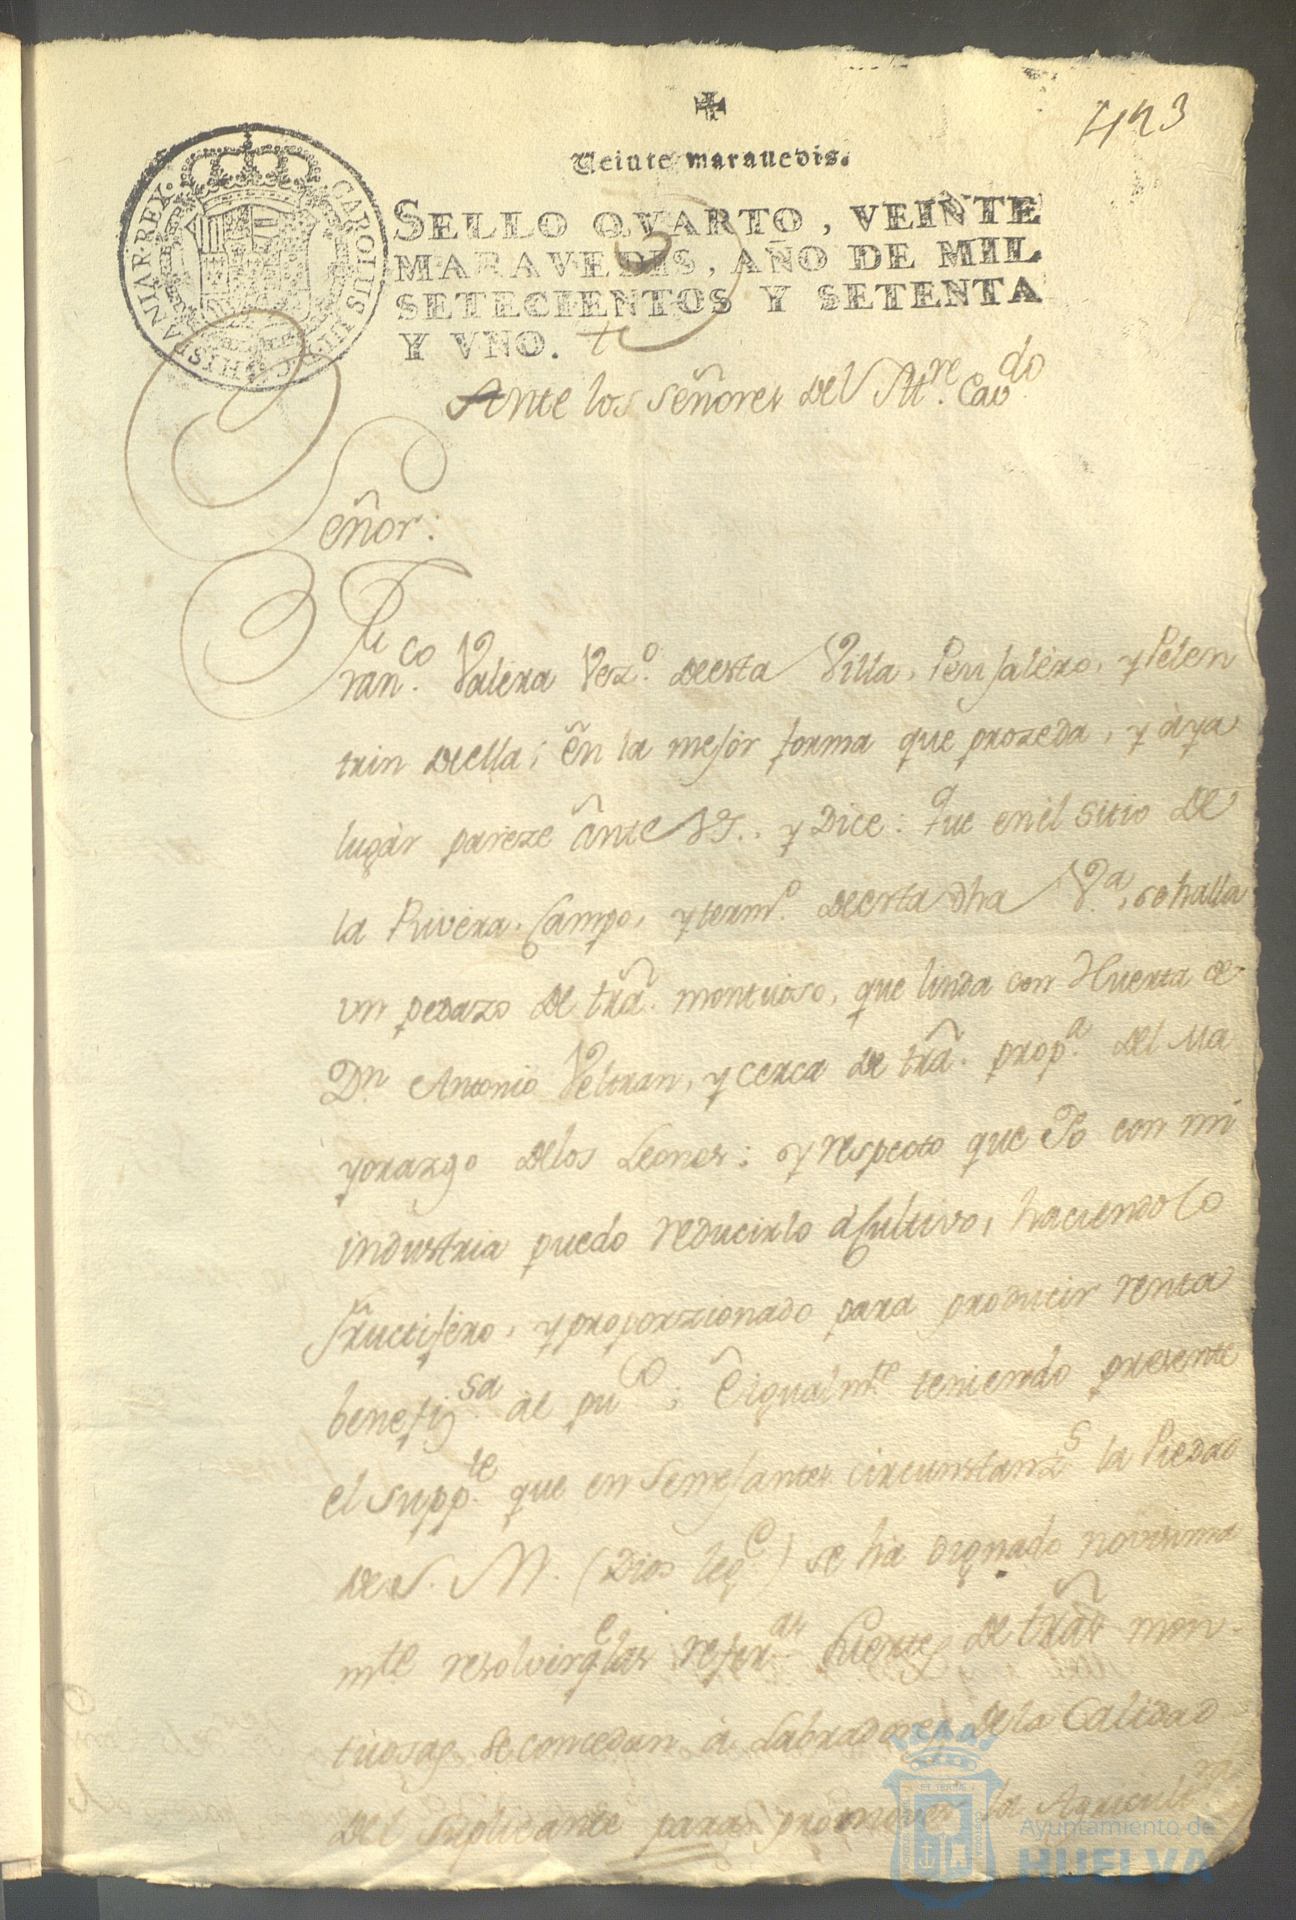 423
Veinte marauedis.
SELLO QVARTO, VEINTE
MARAVEDIS, AÑO DE MIL
SETECIENTOS Y SETENTA
Y VNO.
CAROLUS III. D. G. HISPANIAR. REX.
Ante los señores del Ittre. Cavdo.
Señor:
Franco. Valera Vezo. deesta Villa, Peujalero, y Pelen
trin deella; en la mejor forma que prozeda, y àya
lugàr pareze ànte VS., y Dice: que en el sitio de
la Rivera, Campo, y termo. deesta dha Va., se halla
un pedazo de trã. montuoso, que linda con Huerta de
Dn. Antonio Veltran, y cerca de trã. propa. del Ma
yorazgo delos Leones; y respecto que Yo con mi
industria puedo reducirlo àCultivo, haciendolo
fructifero, y proporzionado para producir renta
benefijsa al puco; È igualmte. teniendo presente
el suppte. que en Semejantes circunstanzs. la Piedad
de S. M. (Dios lege.) se ha dignado novisima
mte resolver qe las referas. Suertes de trãs mon-
tuosas se concedan à Labradores dela Calidad
del suplicante para promover la Agricultra.
Ayuntamiento de
HUELVA